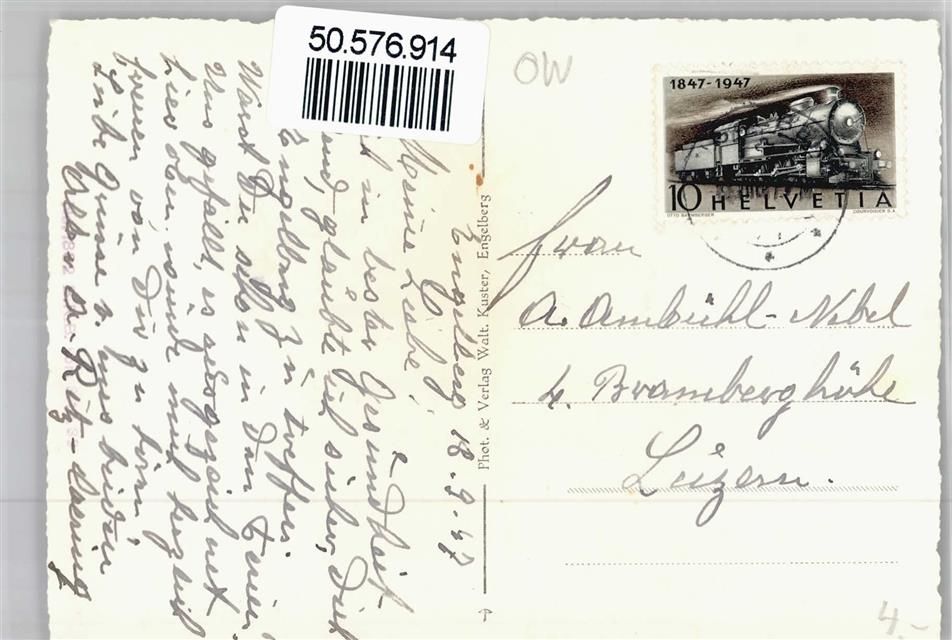 50.576.914
OW
1847-1947
10 HELVETIA
OTTO BAUMBERGER
COURVOISIER S.A.
Frau
A. Ambühl-Nobel
4. Bramberghöhe
Luzern.
Phot. & Verlag Walt. Kuster, Engelberg
Engelberg 18.9.47
Meine Liebe!
in bester Gesundheit
und glaubte ich sicher, Dich
Engelberg zu treffen.
Warst Du schon in den Ferien?
Uns gefällt es ausgezeichnet
hier oben, würde mich herzlich
freuen von Dir zu hören.
Liebe Grüsse v. uns beiden
4-